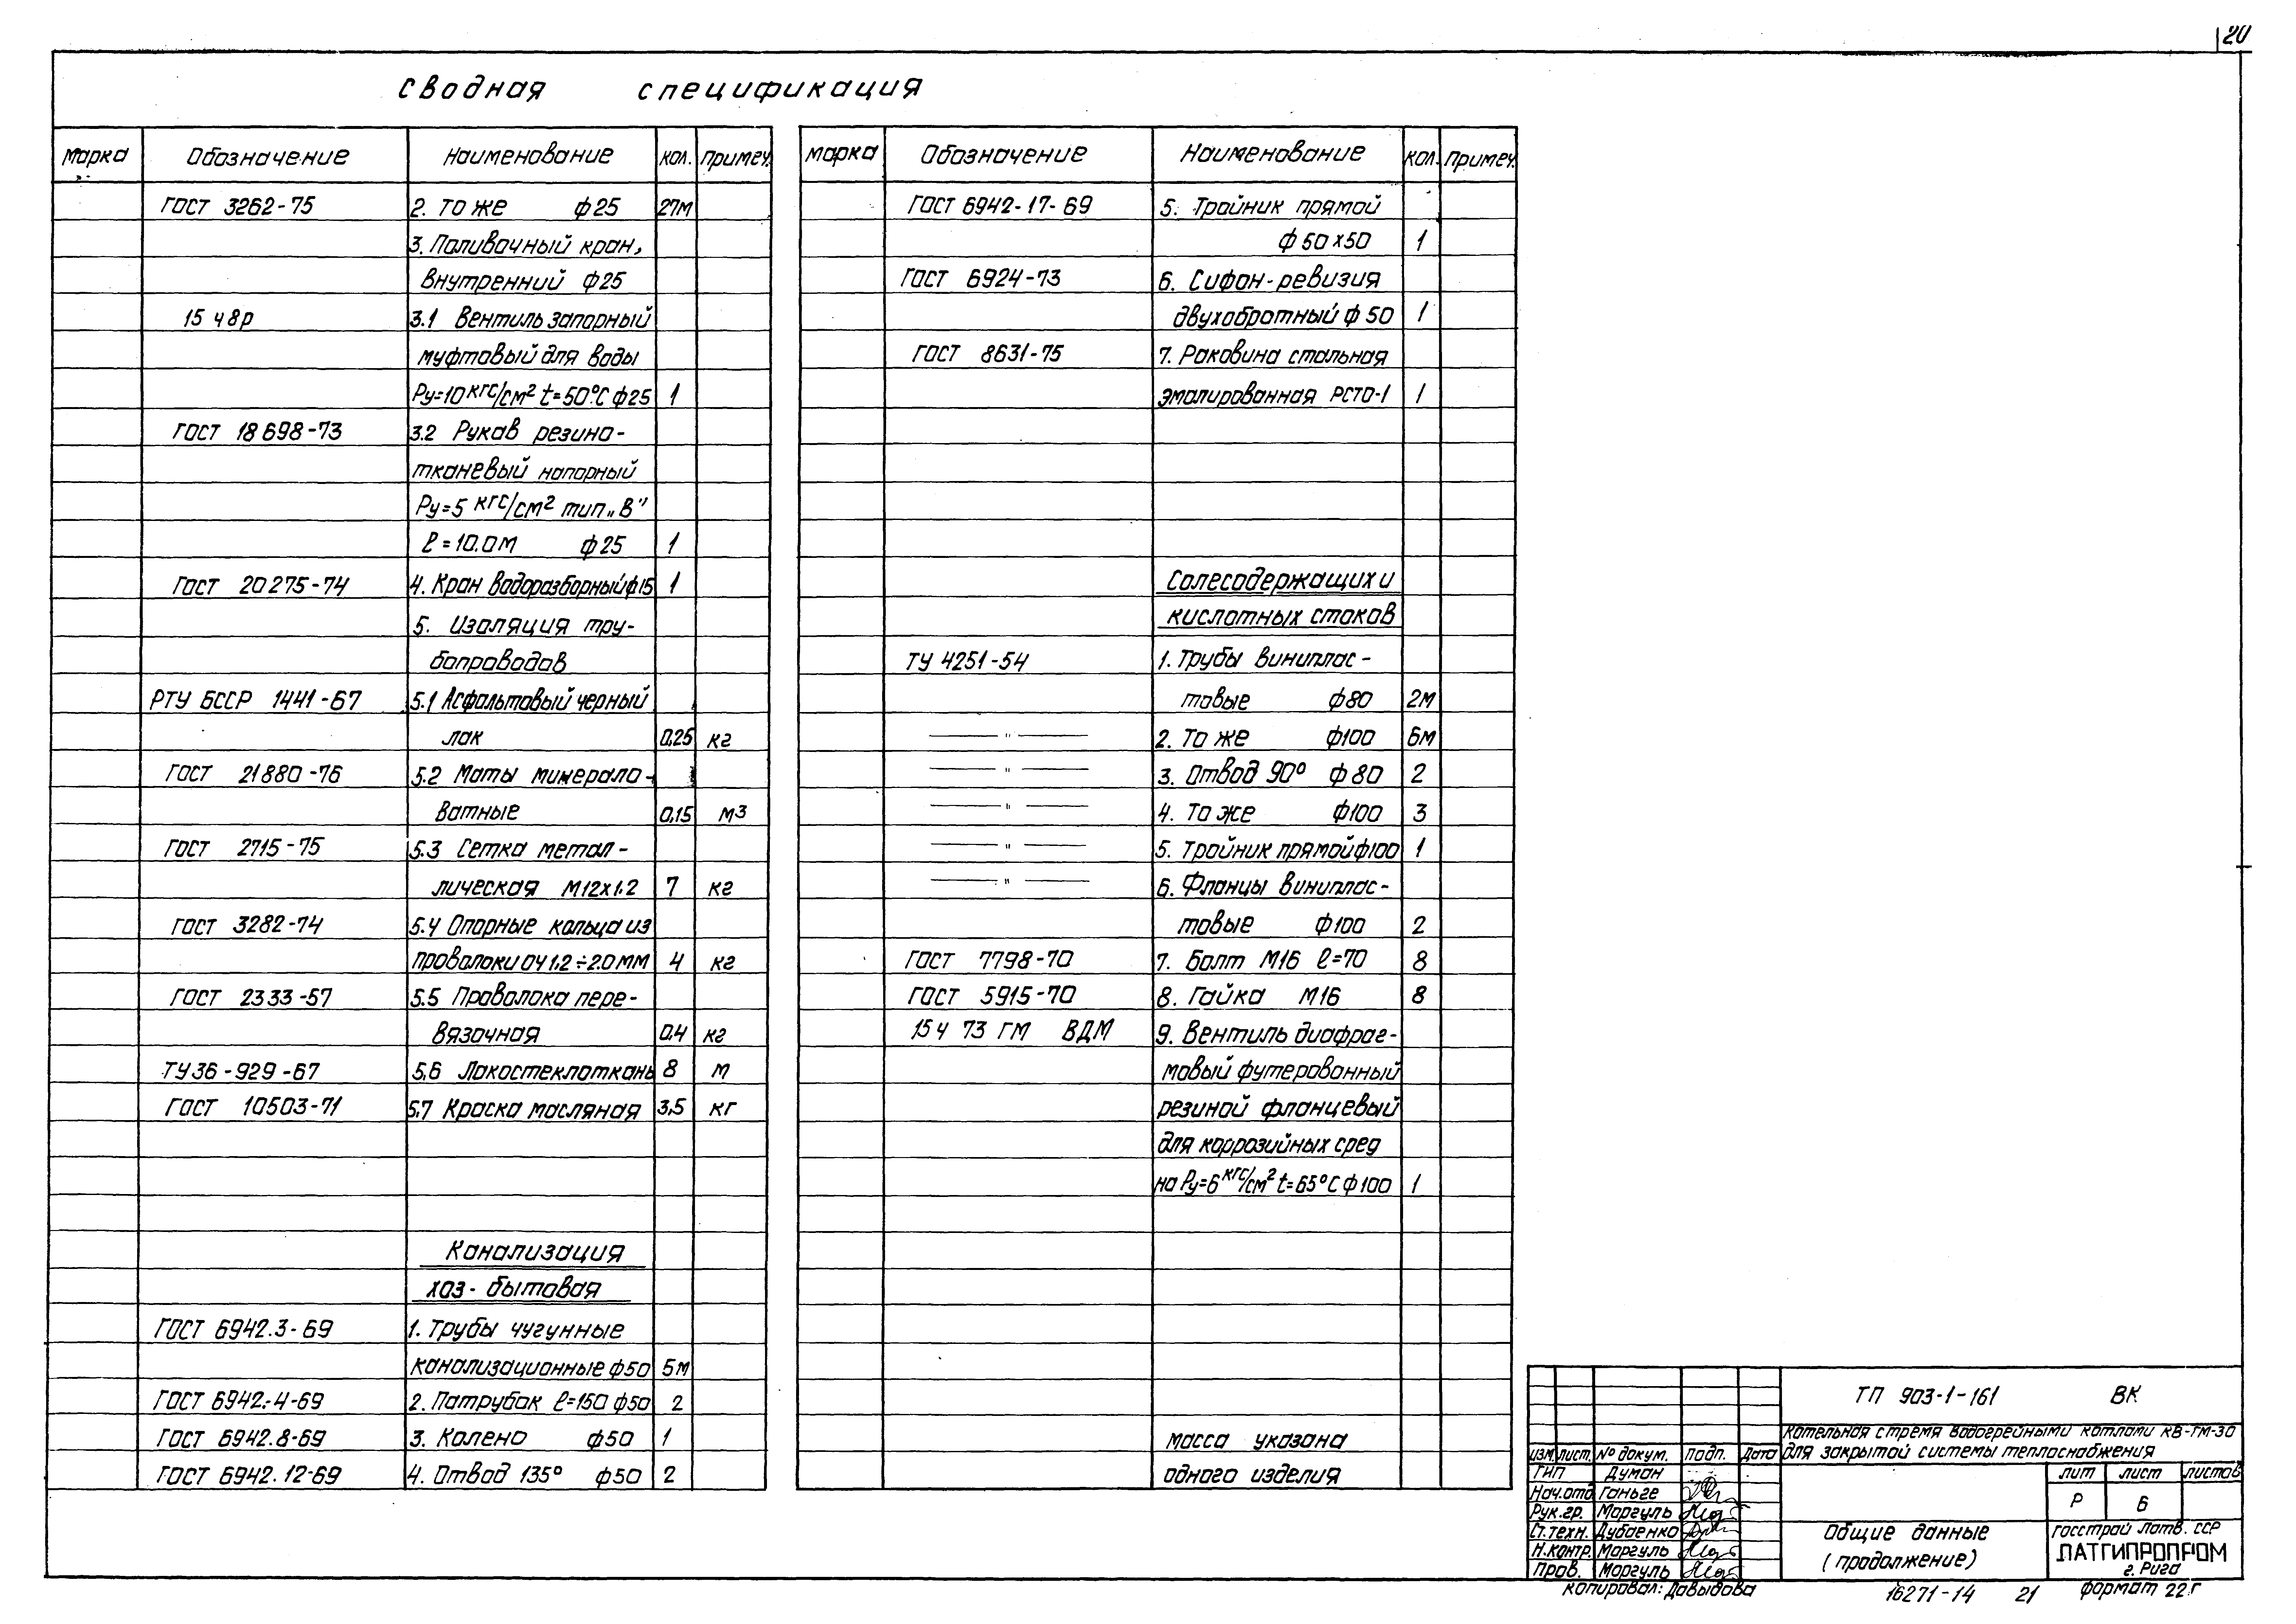 20
Сводная спецификация
Марка Обозначение Наименование Кол. Примеч.
ГОСТ 3262-75 2. То же ф25 27м
3. Поливочный кран,
внутренний ф25
15ч8р 3.1 Вентиль запорный
муфтовый для воды
Ру=10 кгс/см² t=50°C ф25 1
ГОСТ 18698-73 3.2 Рукав резино-
тканевый напорный
Ру=5 кгс/см² тип „В"
ℓ=10.0м ф25 1
ГОСТ 20275-74 4. Кран водоразборный ф15 1
5. Изоляция тру-
бопроводов
РТУ БССР 1441-67 5.1 Асфальтовый черный
лак 0,25 кг
ГОСТ 21880-76 5.2 Маты минерало-
ватные 0,15 м3
ГОСТ 2715-75 5.3 Сетка метал-
лическая М12х1.2 7 кг
ГОСТ 3282-74 5.4 Опорные кольца из
проволоки ОЧ 1.2÷2.0мм 4 кг
ГОСТ 2333-57 5.5 Проволока пере-
вязочная 0.4 кг
ТУ36-929-67 5.6 Лакостеклоткань 8 м
ГОСТ 10503-71 5.7 Краска масляная 3,5 кг
Канализация
хоз-бытовая
ГОСТ 6942.3-69 1. Трубы чугунные
канализационные ф50 5м
ГОСТ 6942.-4-69 2. Патрубок ℓ=150 ф50 2
ГОСТ 6942.8-69 3. Колено ф50 1
ГОСТ 6942.12-69 4. Отвод 135° ф50 2
Марка Обозначение Наименование Кол. Примеч.
ГОСТ 6942-17-69 5. Тройник прямой
ф50х50 1
ГОСТ 6924-73 6. Сифон-ревизия
двухобротный ф50 1
ГОСТ 8631-75 7. Раковина стальная
эмалированная РСТО-1 1
Солесодержащих и
кислотных стоков
ТУ 4251-54 1. Трубы виниплас-
товые ф80 2м
—"— 2. То же ф100 6м
—"— 3. Отвод 90° ф80 2
—"— 4. То же ф100 3
—"— 5. Тройник прямой ф100 1
—"— 6. Фланцы виниплас-
товые ф100 2
ГОСТ 7798-70 7. Болт М16 ℓ=70 8
ГОСТ 5915-70 8. Гайка М16 8
15ч 73 ГМ ВДМ 9. Вентиль диафраг-
мовый футерованный
резиной фланцевый
для коррозийных сред
на Ру=6 кгс/см² t=65°C ф100 1
масса указана
одного изделия
ТП 903-1-161 ВК
Котельная с тремя водогрейными котлами КВ-ГМ-30
для закрытой системы теплоснабжения
Изм. Лист. № докум. Подп. Дата
ГИП Думан
Нач.отд Ганьге
Рук.гр. Маргуль
Ст.техн. Дубаенко
Н.контр. Маргуль
Пров. Маргуль
Лит Лист Листов
Р 6
Общие данные
(продолжение)
Госстрой Латв. ССР
ЛАТГИПРОПРОМ
г. Рига
Копировал: Давыдова 16271-14 21 Формат 22г